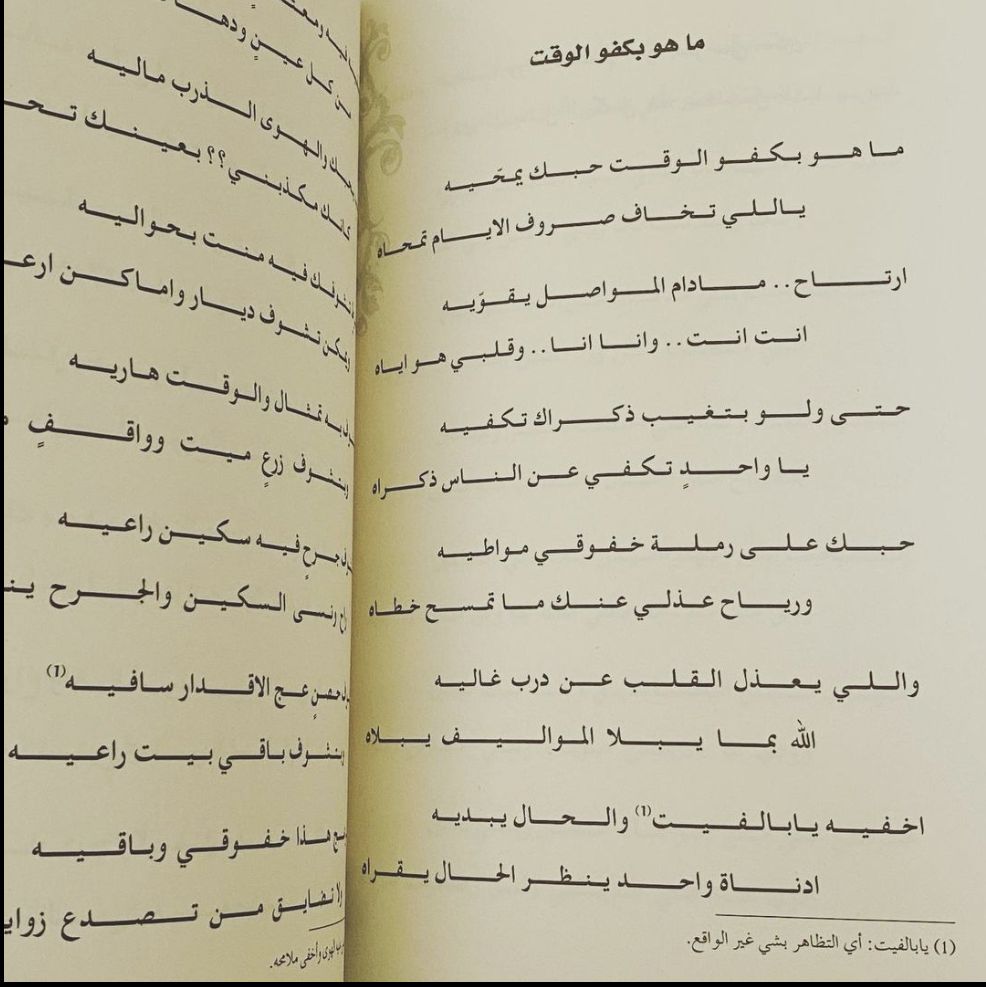 ما هو بكفو الوقت
ما هو بكفو الوقت حبك يمحّيه
ياللي تخاف صروف الايام تمحاه
ارتاح.. مادام المواصل يقوّيه
انت انت.. وانا انا.. وقلبي هو اياه
حتى ولو بتغيب ذكراك تكفيه
يا واحدٍ تكفي عن الناس ذكراه
حبك على رملة خفوقي مواطيه
ورياح عذلي عنك ما تمسح خطاه
واللي يعذل القلب عن درب غاليه
الله بما يبلا المواليف يبلاه
اخفيه يابالفيت(1) والحال يبديه
ادناة واحد ينظر الحال يقراه
(1) يابالفيت: أي التظاهر بشي غير الواقع.
من كل عينٍ
والهوى الذرب ماليه
كانك مكذبني؟؟ بعينك
فيه منت بحواليه
ولكن تشوف ديار واماكن
به تمثال والوقت هاريه
وبنشوف زرعٍ ميت وواقفٍ
جرحٍ فيه سكين راعيه
ونسى السكين والجرح
حصنٍ عج الاقدار سافيه(1)
وبنشوف باقي بيت راعيه
هذا خفوقي وباقيه
لا تضايق من تصدع
الهوى وأخفى ملامحه.